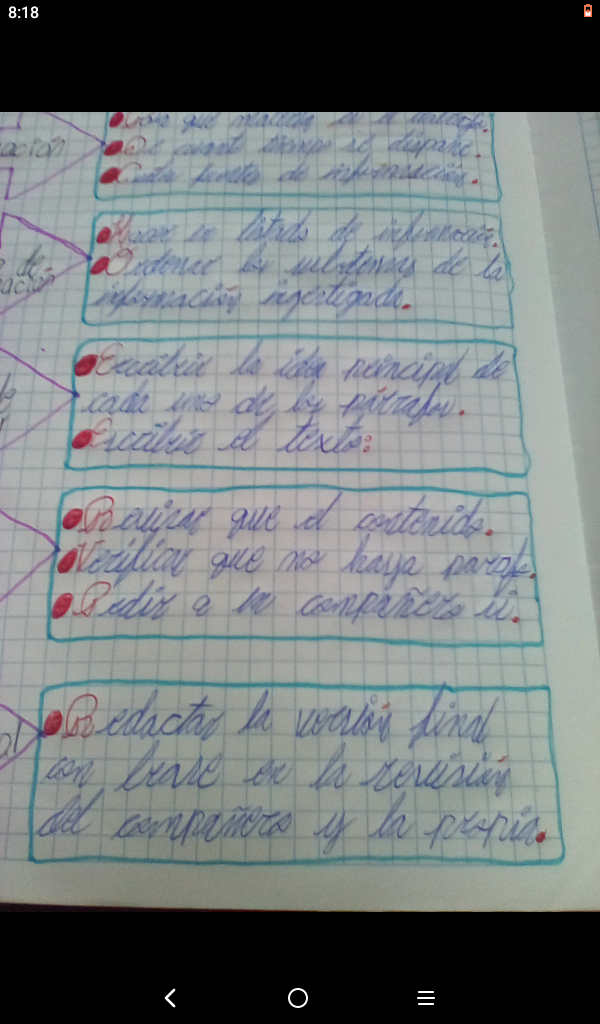 8:18
que
ación
De cuant tiempo se dispone.
de información.
de
ación
Hacer un listado de información.
Ordenar los subtemas de la
información
Escribir la idea principal de
cada uno de los párrafos.
Escribir el texto:
Revisar que el contenido.
Verificar que no haya parafo.
Pedir a un compañero si.
al
Redactar la versión final
con base en la revisión
del compañero y la propia.